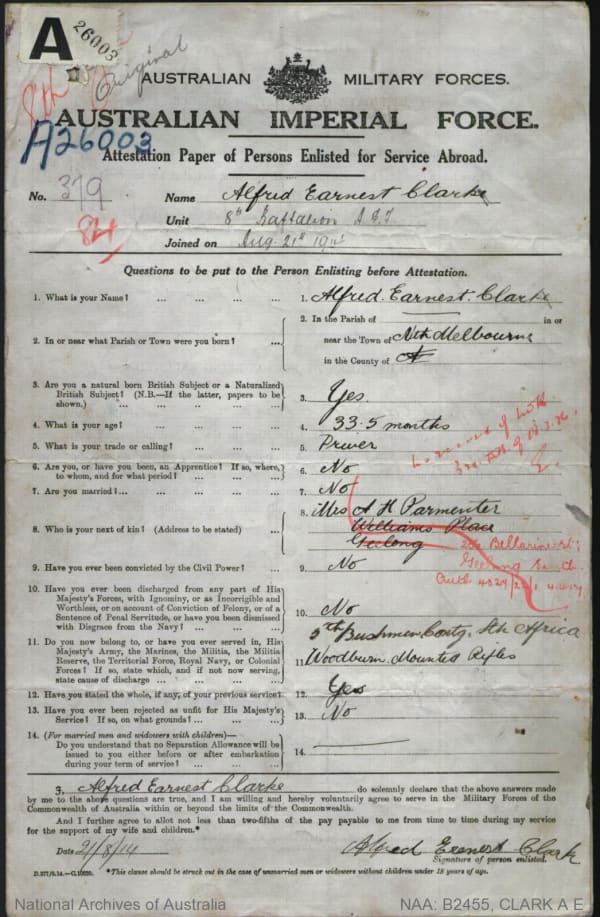 A 26003
Original
8th
AUSTRALIAN MILITARY FORCES.
AUSTRALIAN IMPERIAL FORCE.
A26003
Attestation Paper of Persons Enlisted for Service Abroad.
No. 379 Name Alfred Earnest Clarke
Unit 8th Battalion A.I.F
Joined on Aug. 21st 1914
Questions to be put to the Person Enlisting before Attestation.
1. What is your Name? ... ... ... ... 1. Alfred. Earnest. Clarke
2. In or near what Parish or Town were you born? ... 2. In the Parish of in or
near the Town of Nth Melbourne
in the County of
3. Are you a natural born British Subject or a Naturalized
British Subject? (N.B.—If the latter, papers to be
shown.) ... ... ... ... ... 3. Yes.
4. What is your age? ... ... ... ... 4. 33. 5 months
5. What is your trade or calling? ... ... ... 5.
6. Are you, or have you been, an Apprentice? If so, where,
to whom, and for what period? ... ... ... 6. No
7. Are you married?... ... ... ... ... 7. No
8. Who is your next of kin? (Address to be stated) ... 8. Mrs A H Parmenter
Williams Place
Geelong
Bellarine St
Geelong South
9. Have you ever been convicted by the Civil Power? ... 9. No
10. Have you ever been discharged from any part of His
Majesty's Forces, with Ignominy, or as Incorrigible and
Worthless, or on account of Conviction of Felony, or of a
Sentence of Penal Servitude, or have you been dismissed
with Disgrace from the Navy? ... ... ... 10. No
11. Do you now belong to, or have you ever served in, His
Majesty's Army, the Marines, the Militia, the Militia
Reserve, the Territorial Force, Royal Navy, or Colonial
Forces? If so, state which, and if not now serving,
state cause of discharge ... ... ... 11. 5th Bushmen Contg. Sth Africa
Woodburn Mounted Rifles
12. Have you stated the whole, if any, of your previous service? 12. Yes
13. Have you ever been rejected as unfit for His Majesty's
Service? If so, on what grounds? ... ... ... 13. No
14. (For married men and widowers with children)—
Do you understand that no Separation Allowance will be
issued to you either before or after embarkation
during your term of service? ... ... ... 14.
I, Alfred Earnest Clarke do solemnly declare that the above answers made
by me to the above questions are true, and I am willing and hereby voluntarily agree to serve in the Military Forces of the
Commonwealth of Australia within or beyond the limits of the Commonwealth.
And I further agree to allot not less than two-fifths of the pay payable to me from time to time during my service
for the support of my wife and children.*
Date 21/8/14 Alfred Eernest Clark
Signature of person enlisted.
*This clause should be struck out in the case of unmarried men or widowers without children under 18 years of age.
National Archives of Australia NAA: B2455, CLARK A E